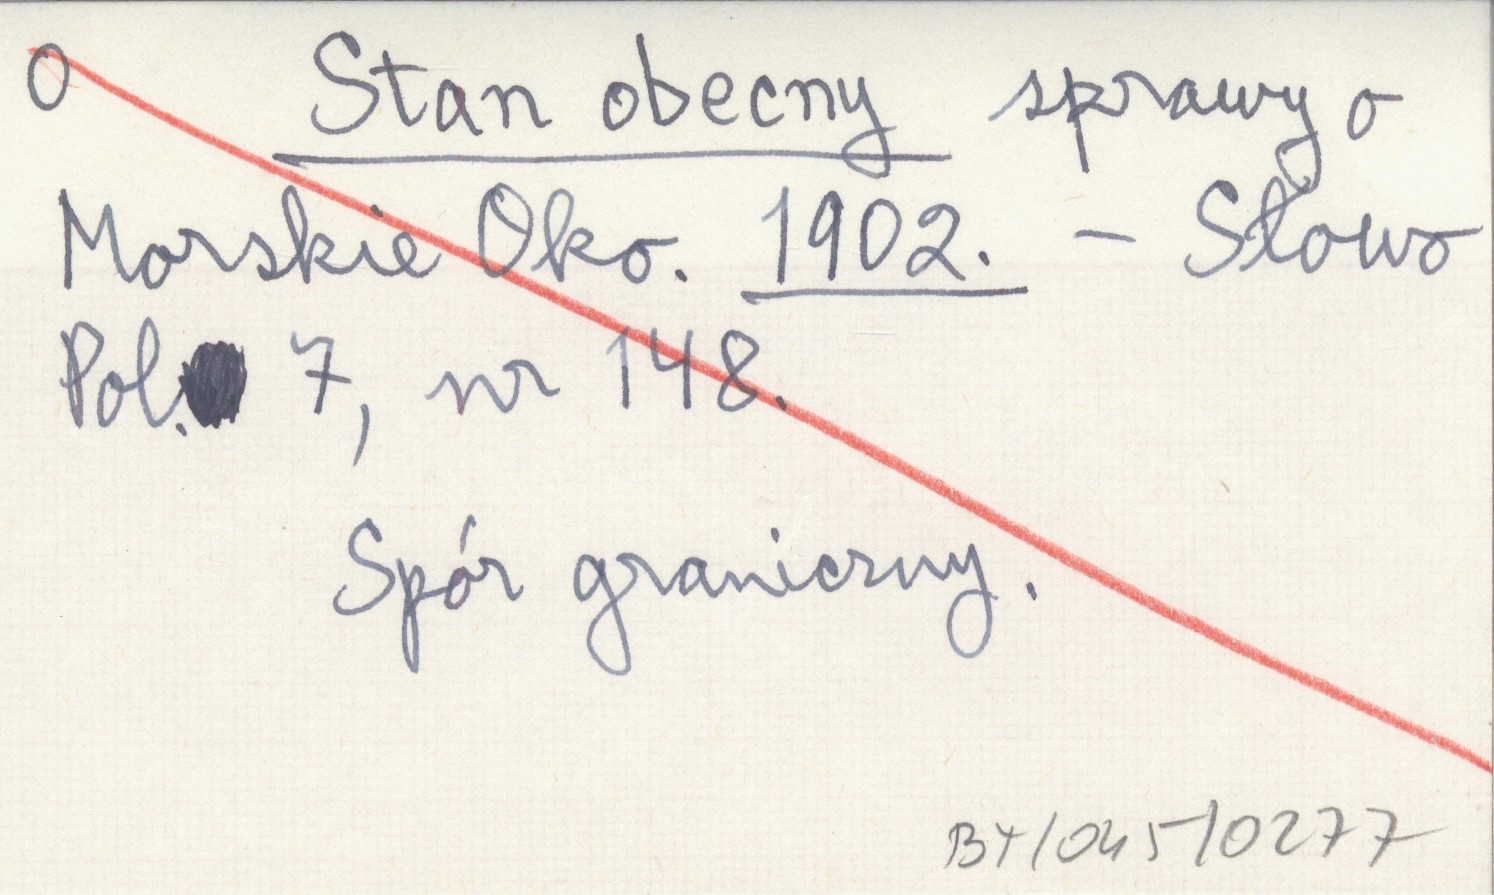 0 Stan obecny sprawy o
Morskie Oko. 1902. - Słowo
Pol. 7, nr 148.
Spór graniczny.
BT/045/0277